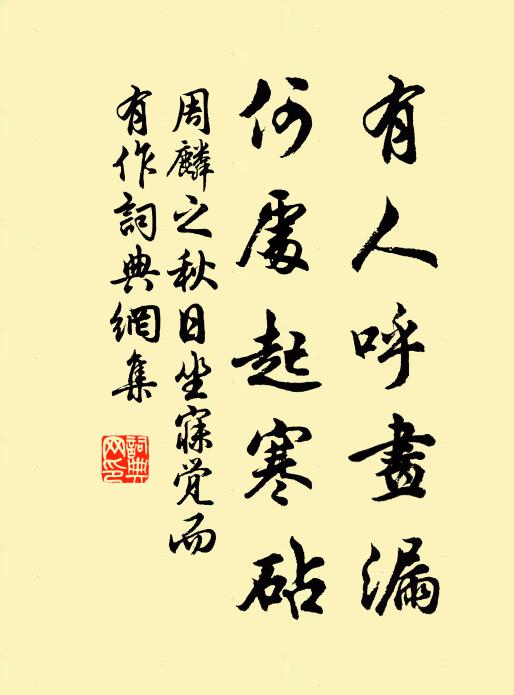 有人呼晝漏
何處起寒砧
周麟之秋日坐寐觉而
有作詞典網集
詞典
网印